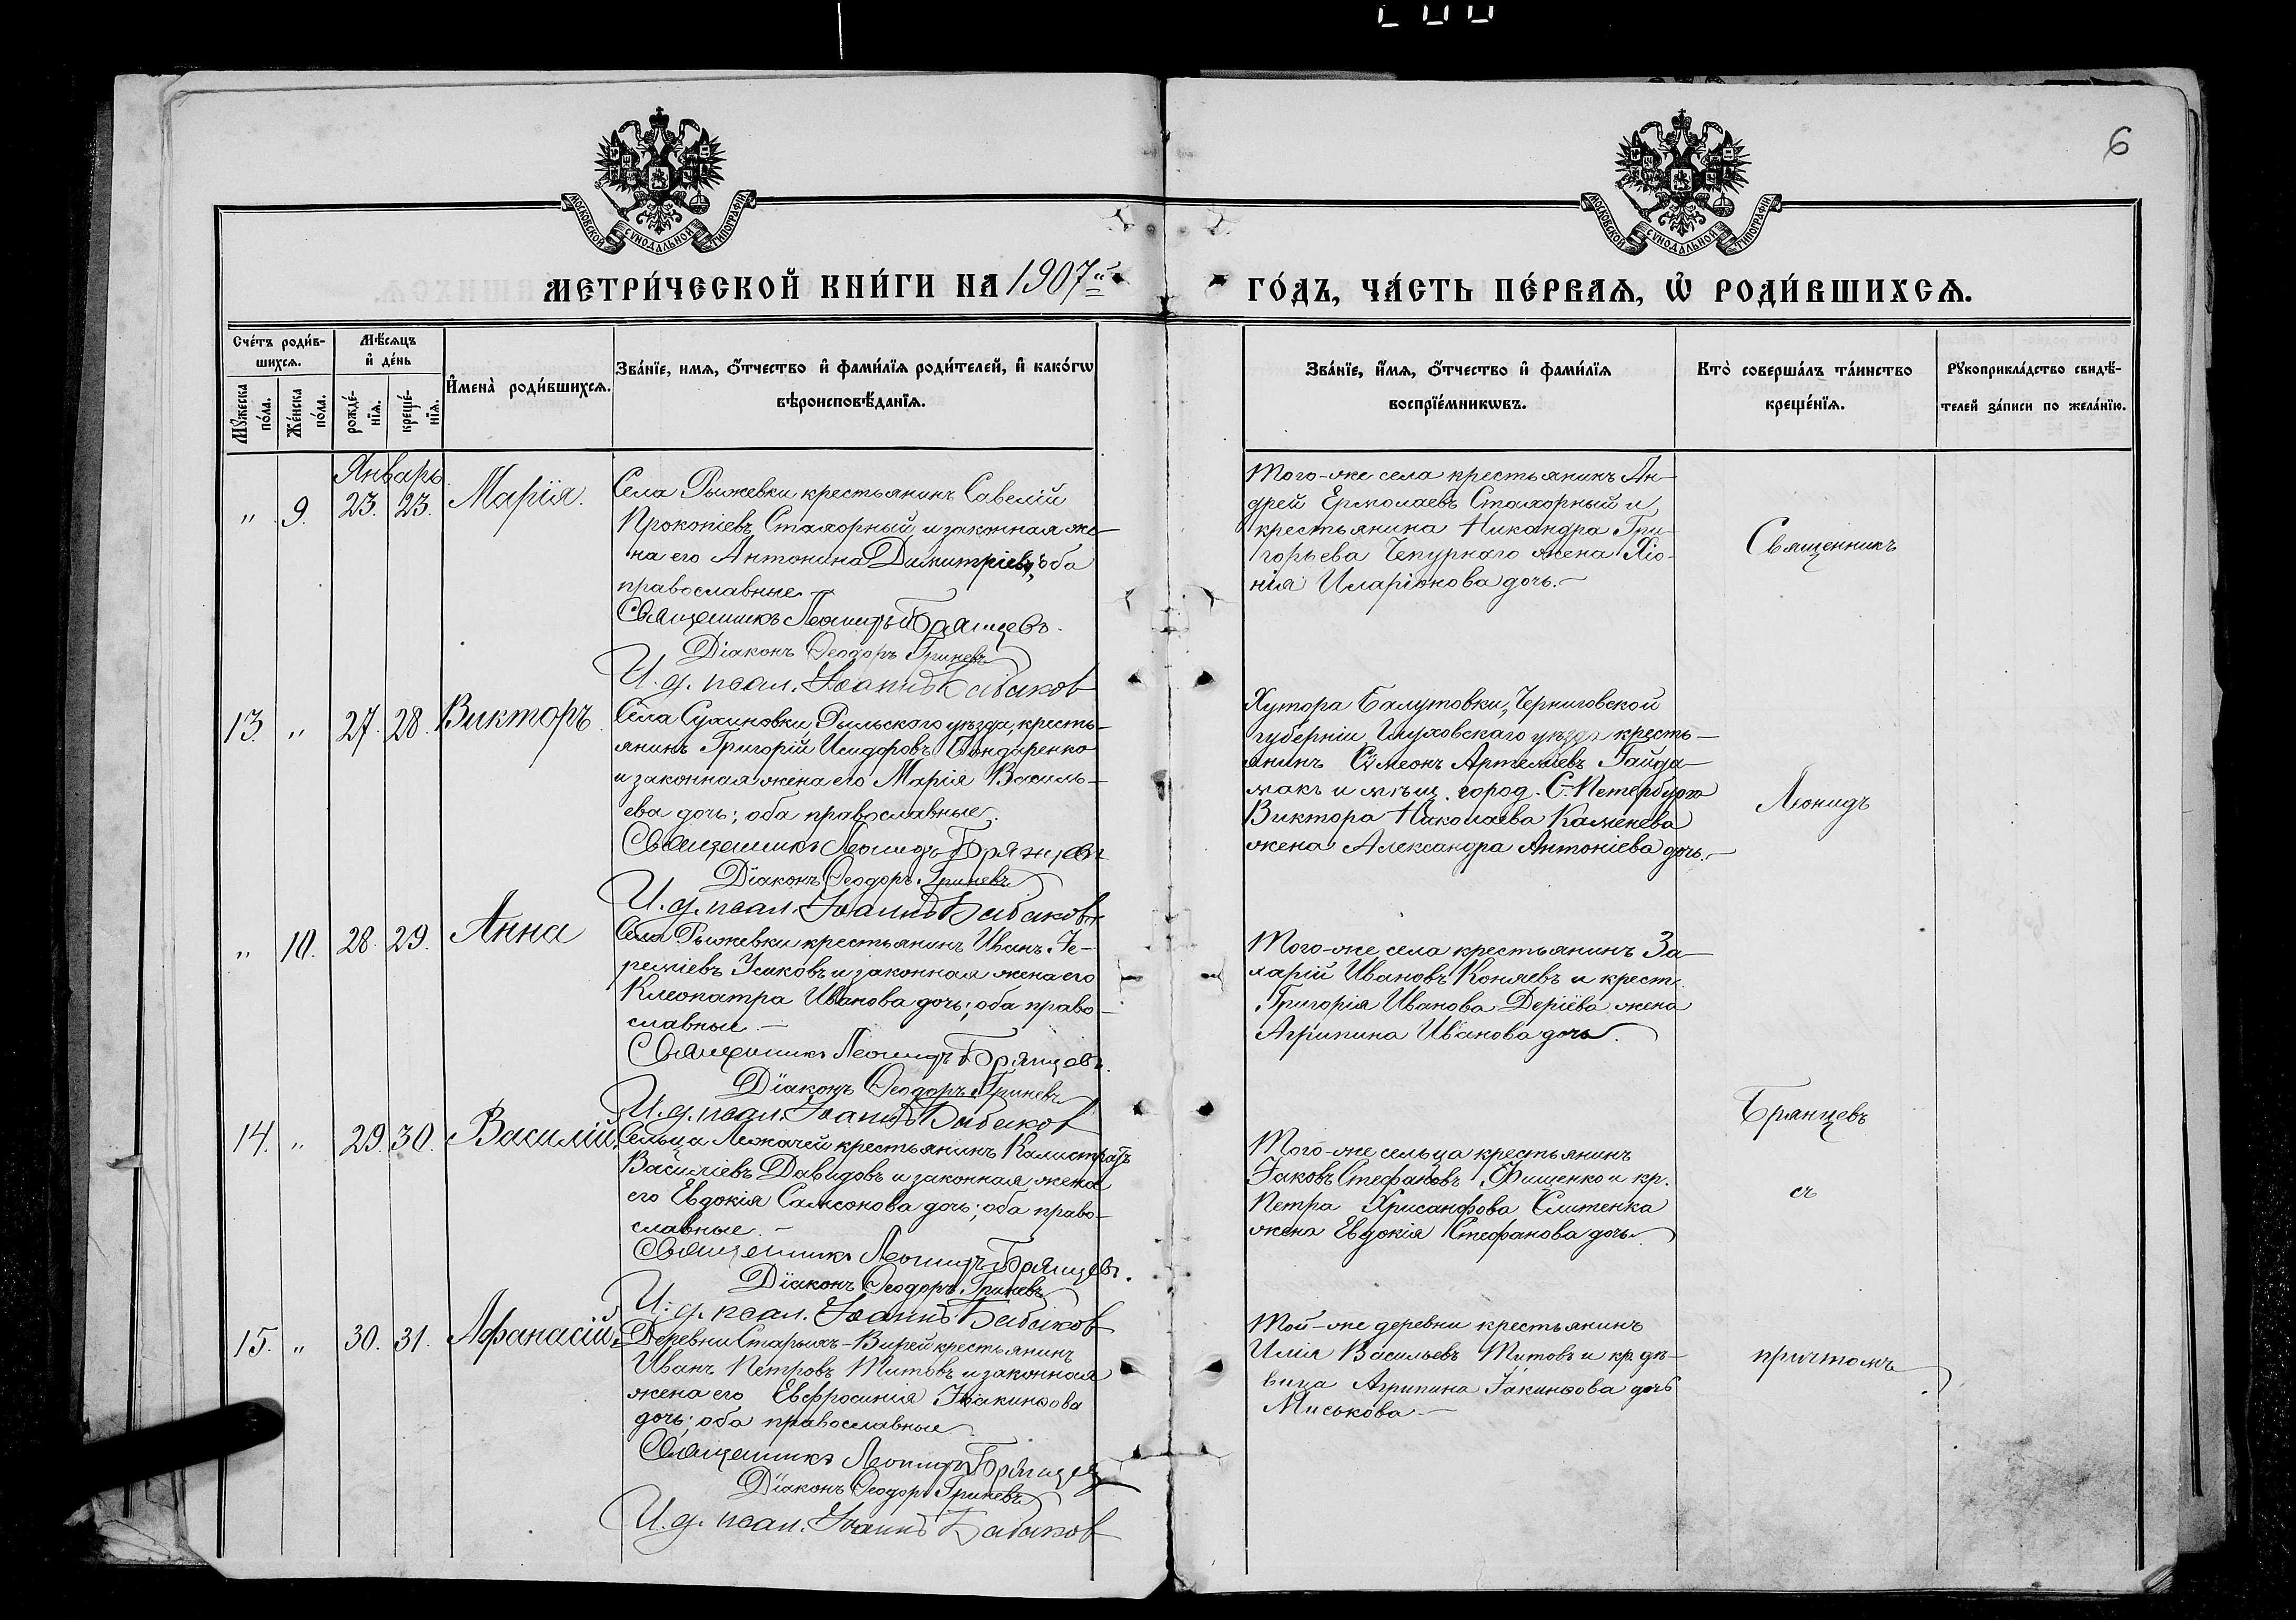 6
МОСКОВСКОЙ СѴНОДАЛЬНОЙ ТИПОГРАФІИ
МОСКОВСКОЙ СѴНОДАЛЬНОЙ ТИПОГРАФІИ
МЕТРИ́ЧЕСКОЙ КНИ́ГИ НА 1907й
ГО́ДЪ, ЧА́СТЬ ПЕ́РВАѦ, Ѡ҆ РОДИ́ВШИХСѦ.
Сче́тъ роди́в-
шихсѧ.
Мꙋ́жеска
по́ла.
Же́нска
по́ла.
Мѣ́сѧцъ
и҆ де́нь
рожде́-
нїѧ.
креще́-
нїѧ.
И҆мена̀ роди́вшихсѧ.
Зва́нїе, имѧ, ѻ҆́тчество и҆ фами́лїѧ роди́телей, и҆ како́гѡ
вѣроисповѣ́данїѧ.
Зва́нїе, и҆́мѧ, ѻ҆́тчество и҆ фами́лїѧ
воспрїе́мникѡвъ.
Кто̀ соверша́лъ та́инство
креще́нїѧ.
Рꙋкоприкла́дство свидѣ́-
телей за́писи по жела́нїю.
Январь
" 9. 23. 23. Марія.
Села Рыжевки крестьянинъ Савелій
Прокопіевъ Стахорный и законная же-
на его Антонина Димитріева, оба
православные.
Священникъ Леонидъ Брянцевъ.
Діаконъ Ѳеодоръ Гриневъ
И. д. псал. Іоаннъ Бабаков
Того-же села крестьянинъ Ан-
дрей Ермолаевъ Стахорный и
крестьянина Никандра Гри-
горьева Чепурнаго жена Хіо-
нія Иларіонова дочь.
Священникъ
13. " 27. 28. Викторъ.
Села Сухиновки, Рыльскаго уѣзда, кресть-
янинъ Григорій Исидоровъ Бондаренко
и законная жена его Марія Василь-
ева дочь; оба православные.
Священникъ Леонидъ Брянцевъ
Діаконъ Ѳеодоръ Гриневъ
И. д. псал. Іоаннъ Бабаковъ
Хутора Балутовки, Черниговской
губерніи Глуховскаго уѣзда кресть-
янинъ Сѵмеонъ Артемьевъ Гайда-
макъ и мѣщ. город. С.-Петербурга
Виктора Николаева Каменева
жена Александра Антоніева дочь.
Леонидъ
" 10. 28. 29. Анна
Села Рыжевки крестьянинъ Иванъ Іе-
реміевъ Усиковъ и законная жена его
Клеопатра Иванова дочь; оба право-
славные.
Священникъ Леонидъ Брянцевъ.
Діаконъ Ѳеодоръ Гриневъ
И. д. псал. Іоаннъ Бабаков
Того-же села крестьянинъ За-
харій Ивановъ Коняевъ и крест.
Григорія Иванова Деріёва жена
Агрипина Иванова дочь.
Брянцевъ
14. " 29. 30. Василій.
Сельца Лежачей крестьянинъ Калистратъ
Василіевъ Давидовъ и законная жена
его Евдокія Самсонова дочь; оба право-
славные.
Священникъ Леонидъ Брянцевъ.
Діаконъ Ѳеодоръ Гриневъ
И. д. псал. Іоаннъ Бабаков
Того-же сельца крестьянинъ
Іаковъ Стефановъ Фищенко и кр.
Петра Хрисанфова Слитенка
жена Евдокія Стефанова дочь.
съ
15. " 30. 31. Афанасій.
Деревни Старыхъ-Вирей крестьянинъ
Иванъ Петровъ Титовъ и законная
жена его Евфросинія Іоакинѳова
дочь; оба православные.
Священникъ Леонидъ Брянцев
Діаконъ Ѳеодоръ Гриневъ
И. д. псал. Іоаннъ Бабаков
Той-же деревни крестьянинъ
Илія Васильевъ Титовъ и кр. дѣ-
вица Агрипина Іакинѳова дочь
Миськова.
причтомъ